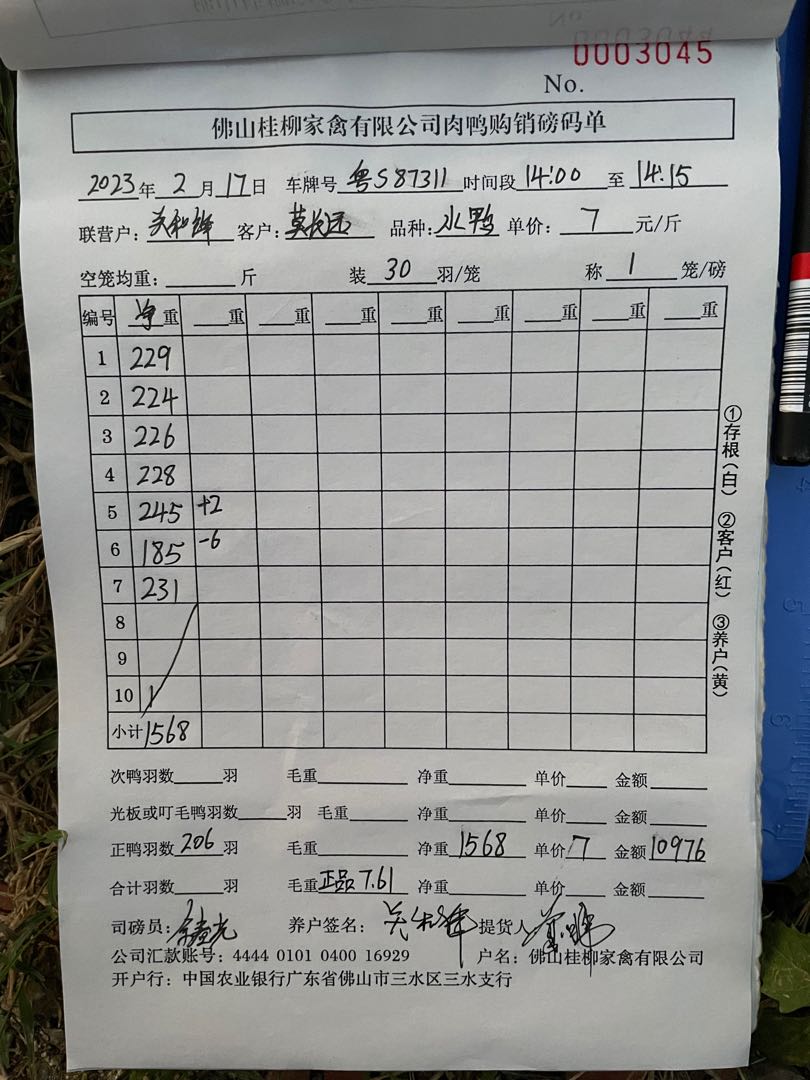 0003045
No.
佛山桂柳家禽有限公司肉鸭购销磅码单
2023年 2 月 17日 车牌号 粤S87311 时间段 14:00 至 14:15
联营户: 客户: 莫长远 品种: 水鸭 单价: 7 元/斤
空笼均重: 斤 装 30 羽/笼 称 1 笼/磅
编号 净重 重 重 重 重 重 重 重 重
1 229
2 224
3 226
4 228
5 245 +2
6 185 -6
7 231
8
9
10
小计 1568
次鸭羽数 羽 毛重 净重 单价 金额
光板或叮毛鸭羽数 羽 毛重 净重 单价 金额
正鸭羽数 206 羽 毛重 净重 1568 单价 7 金额 10976
合计羽数 羽 毛重 正品7.61 净重 单价 金额
司磅员: 养户签名: 提货人
公司汇款账号: 4444 0101 0400 16929 户名: 佛山桂柳家禽有限公司
开户行: 中国农业银行广东省佛山市三水区三水支行
①存根(白) ②客户(红) ③养户(黄)